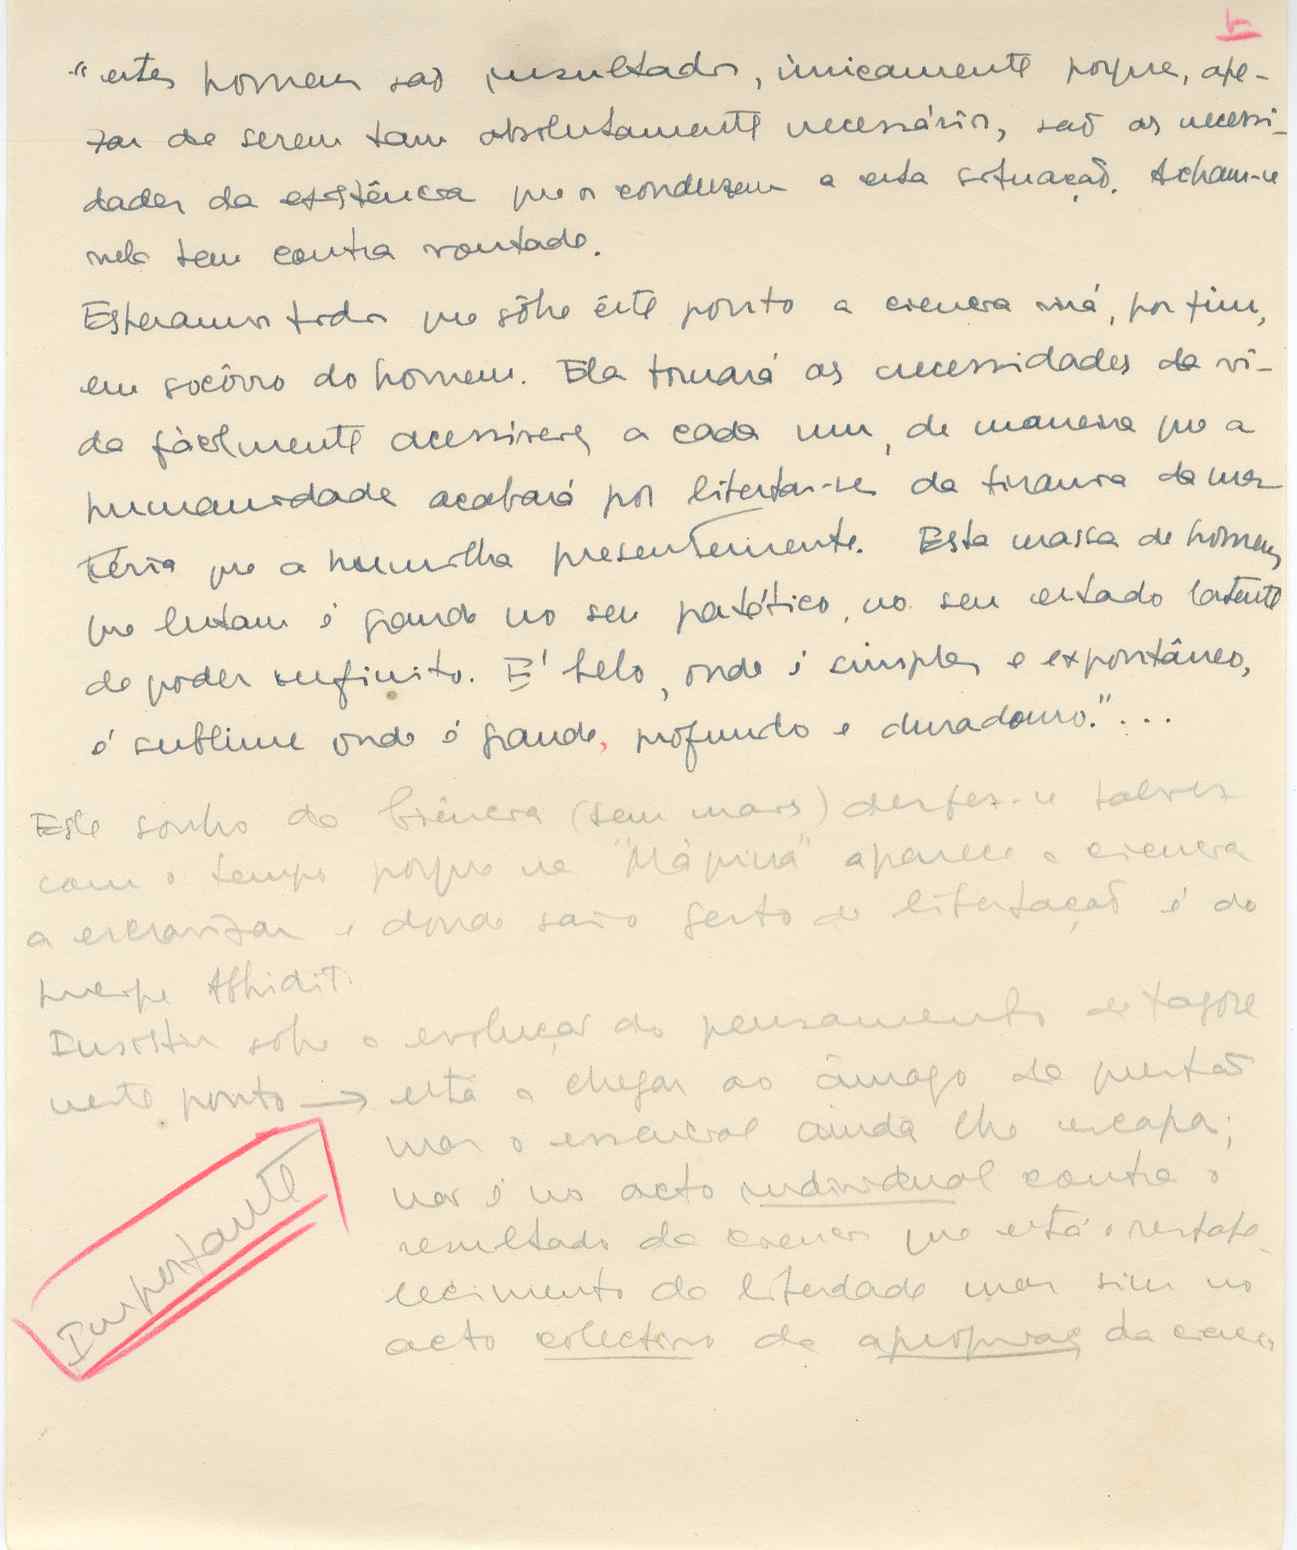 "estes homens são insultados, ùnicamente porque, ape-
zar de serem tam absolutamente necessários, são as necessi-
dades da existência que os conduzem a esta situação. Acham-se
nela bem contra vontade.
Esperamos todos que sôbre êste ponto a ciencia virá, por fim,
em socôrro do homem. Ela tornará as necessidades da vi-
da fàcilmente acessiveis a cada um, de maneira que a
humanidade acabará por libertar-se da tirania da ma-
téria que a humilha presentemente. Esta massa de homens
que lutam é grande no seu patético, no seu estado latente
de poder infinito. E' belo, onde é simples e expontâneo,
é sublime onde é grande, profundo e duradouro."...
Este sonho da Ciência (sem mais) desfez-se talvez
com o tempo porque na "Máquina" aparece a ciencia
a escravizar e donde saiu gesto de libertação é do
principe Abhijit.
Insistir sobre a evolução do pensamento de Tagore
neste ponto → está a chegar ao âmago da questão
mas o essencial ainda lhe escapa;
não é no acto individual contra o
resultado da ciencia que está o restabe-
lecimento da liberdade mas sim no
acto colectivo da apropriação da ciencia
Importante